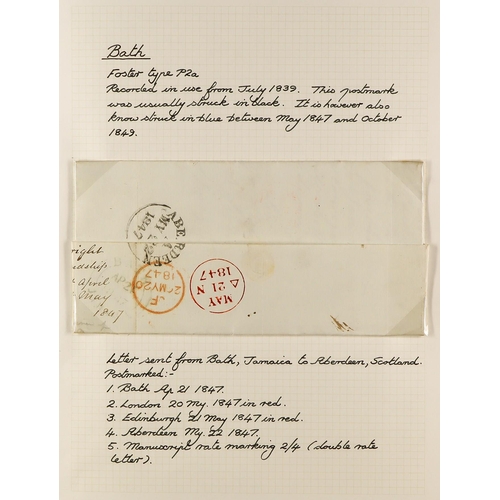 Bath
Foster type P2a
Recorded in use from July 1839. This postmark
was usually struck in black. It is however also
know struck in blue between May 1847 and October
1849.
ABERDEEN
MY 22
1847
right
April
May
1847
JF
20MY20
1847
MAY
21 N
1847
Letter sent from Bath, Jamaica to Aberdeen, Scotland.
Postmarked:-
1. Bath Ap 21 1847.
2. London 20 My. 1847 in red.
3. Edinburgh 21 May 1847 in red.
4. Aberdeen My. 22 1847.
5. Manuscript rate marking 2/4 (double rate
letter).